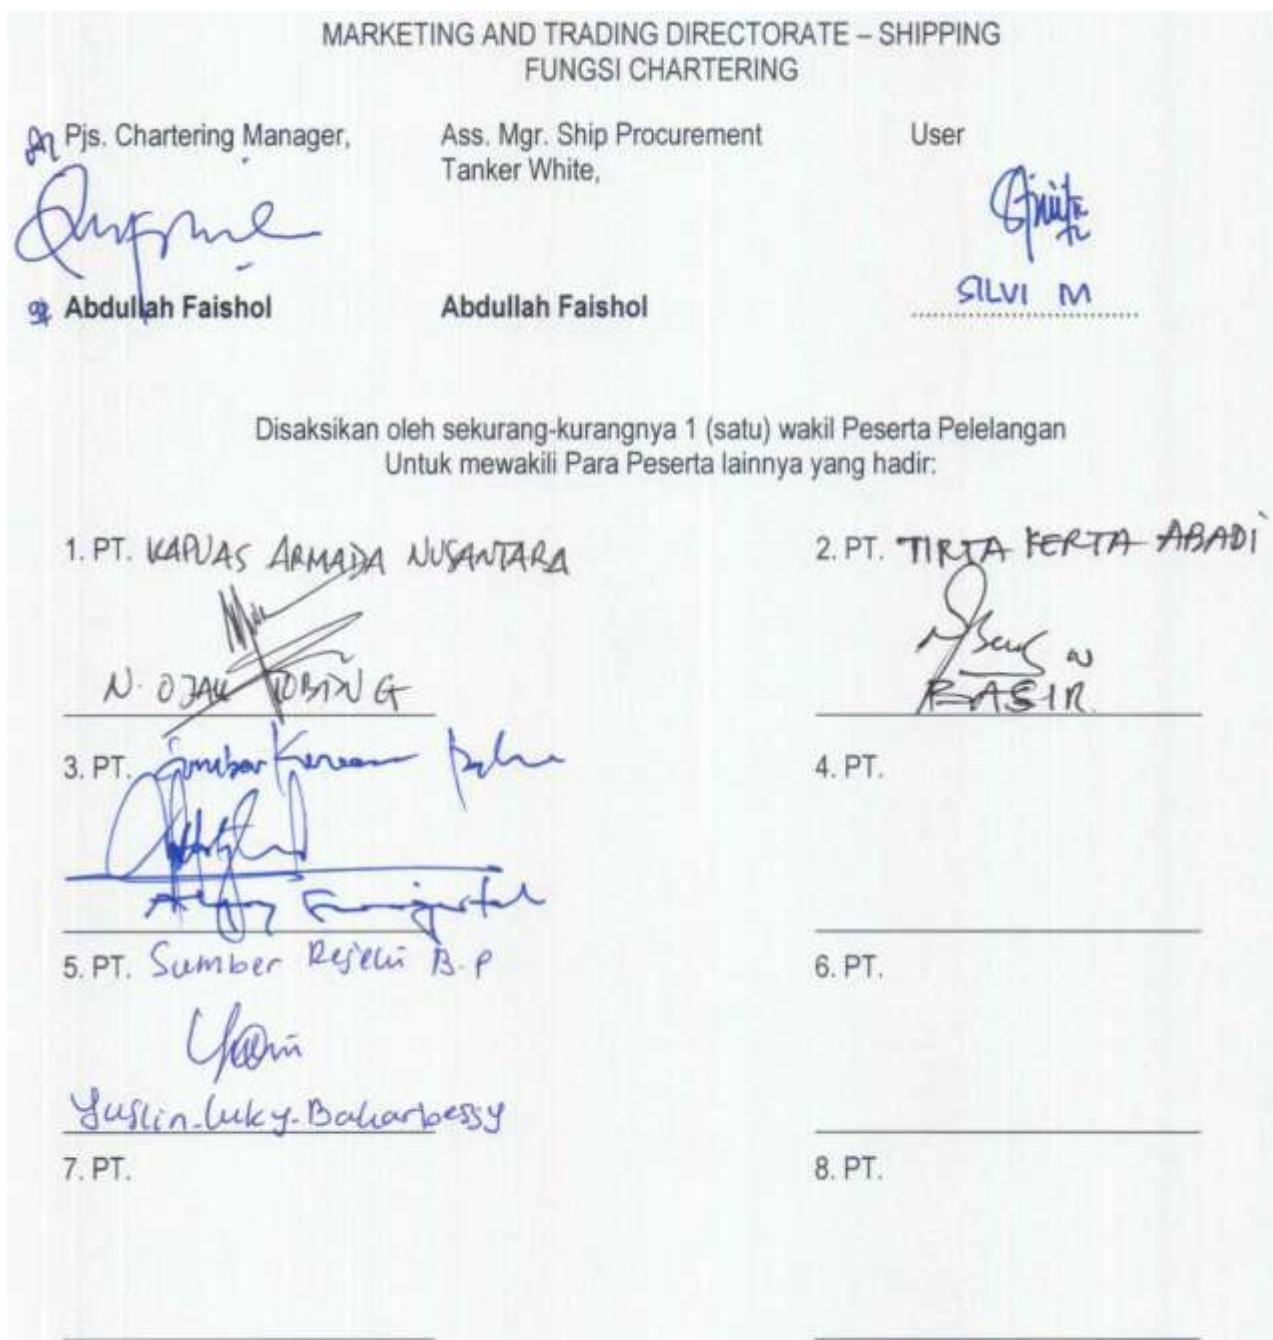 MARKETING AND TRADING DIRECTORATE – SHIPPING
FUNGSI CHARTERING
Pjs. Chartering Manager,
Ass. Mgr. Ship Procurement
Tanker White,
User
Abdullah Faishol
Abdullah Faishol
SILVI M
Disaksikan oleh sekurang-kurangnya 1 (satu) wakil Peserta Pelelangan
Untuk mewakili Para Peserta lainnya yang hadir:
1. PT. KAPUAS ARMADA NUSANTARA
N. OJAK TOBING
2. PT. TIRTA KERTA ABADI
BASIR
3. PT.
4. PT.
5. PT. Sumber Rejeki B.P
Yuslin-Luky-Bakarbessy
6. PT.
7. PT.
8. PT.